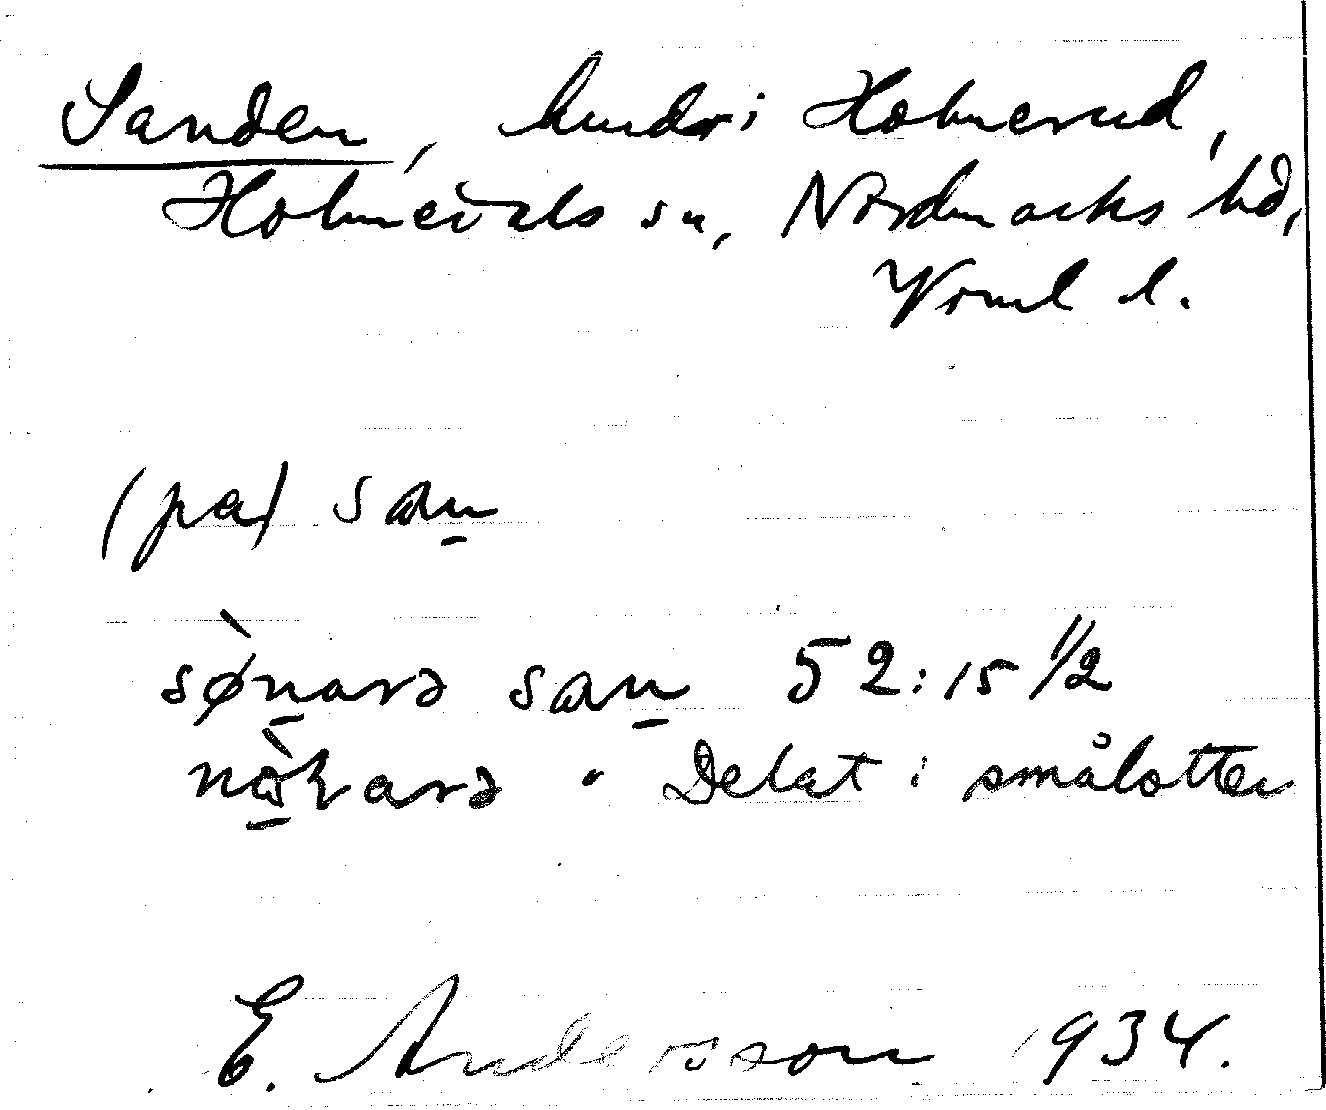 Sanden, hmdr i Holmerud,
Holmedals sn, Nordmarks hd,
Vrml l.
(pa) san̠
sø̀n̠arə san̠ 52:15 1/2
nòḷarə " Delat i smålotter
E. Andersson 1934.